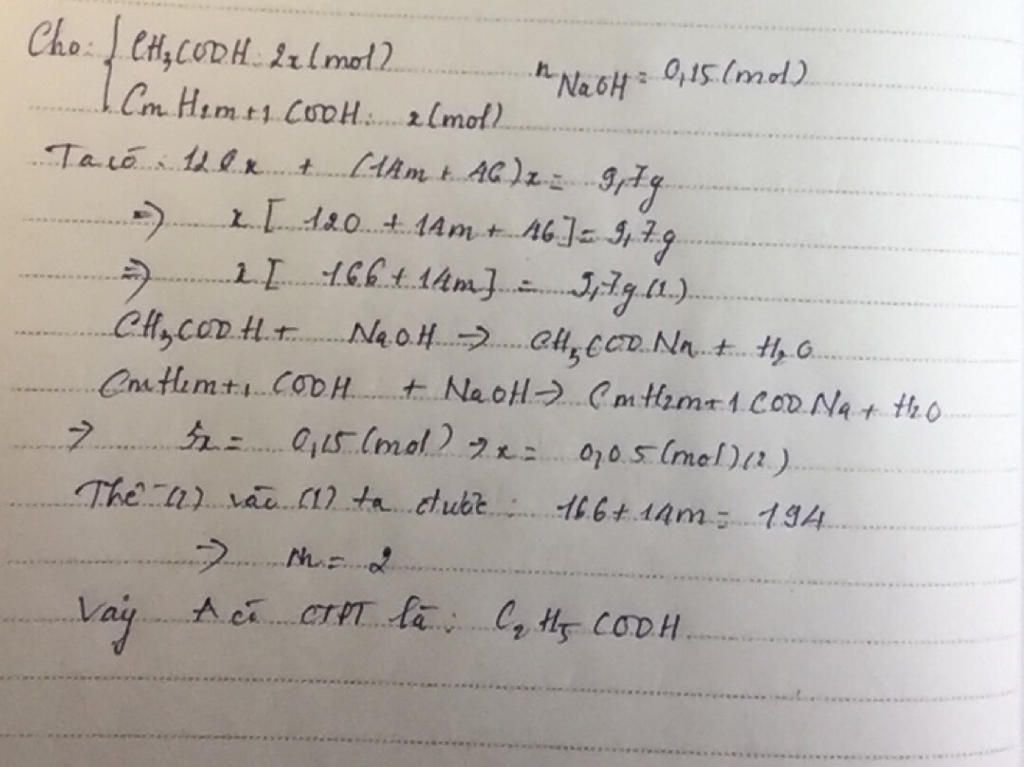 Cho: { CH₃COOH: 2x(mol)
n NaOH = 0,15 (mol)
CmH2m+1 COOH: x(mol)
Ta có: 120x + (14m + 46)x = 9,7g
=> x [ 120 + 14m + 46] = 9,7g
=> x [ 166 + 14m] = 9,7g (1)
CH₃COOH + NaOH → CH₃COONa + H₂O
CmH2m+1 COOH + NaOH → CmH2m+1 COONa + H2O
=> 3x = 0,15 (mol) → x = 0,05 (mol) (2)
Thế (2) vào (1) ta được: 166 + 14m = 194
=> m = 2
Vậy A có CTPT là: C₂H₅COOH.